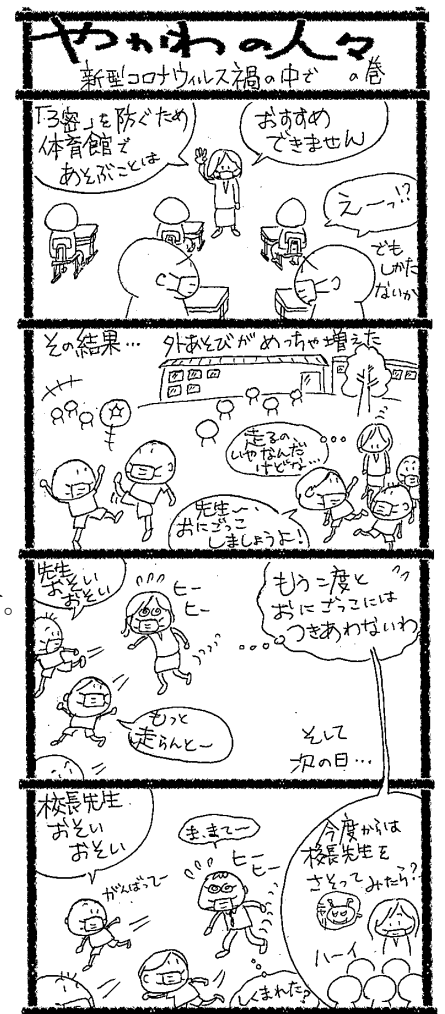 やがわの人々
新型コロナウィルス禍の中で の巻
「3密」を防ぐため
体育館で
あそぶことは
おすすめ
できません
えーっ!?
でも
しかた
ないか
その結果… 外あそびがめっちゃ増えた
走るの、
いやなんだ
けどな…
先生〜、
おにごっこ
しましょうよ!
先生
おそい
おそい
ヒー
ヒー
もう二度と
おにごっこには
つきあわないわ
もっと
走らんと〜
そして
次の日…
校長先生
おそい
おそい
がんばってー
ま、まて〜
ヒー
ヒー
今度からは
校長先生を
さそって
みたら?
ハーイ
くまれた